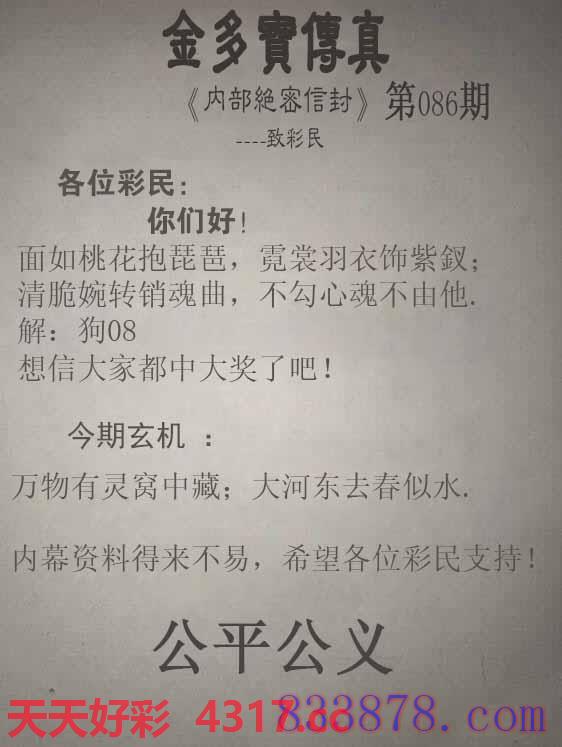 金多寶傳真
《内部絶密信封》第086期
----致彩民
各位彩民:
你们好!
面如桃花抱琵琶，霓裳羽衣饰紫釵；
清脆婉转销魂曲，不勾心魂不由他.
解：狗08
想信大家都中大奖了吧！
今期玄机 ：
万物有灵窝中藏；大河东去春似水.
内幕资料得来不易，希望各位彩民支持！
公平公义
天天好彩 4317.cc
833878.com